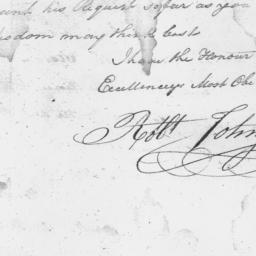 his Request so far as you
may think best
I have the Honour
Excellencys Most Obe
Robt John